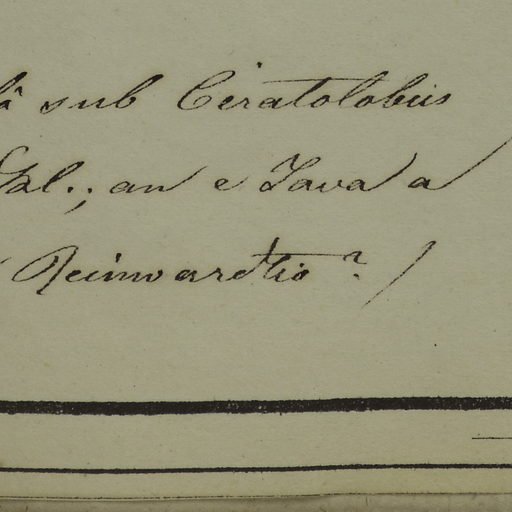 sub Ceratolobus
Gal.; an e Java a
Reinwardtio? /